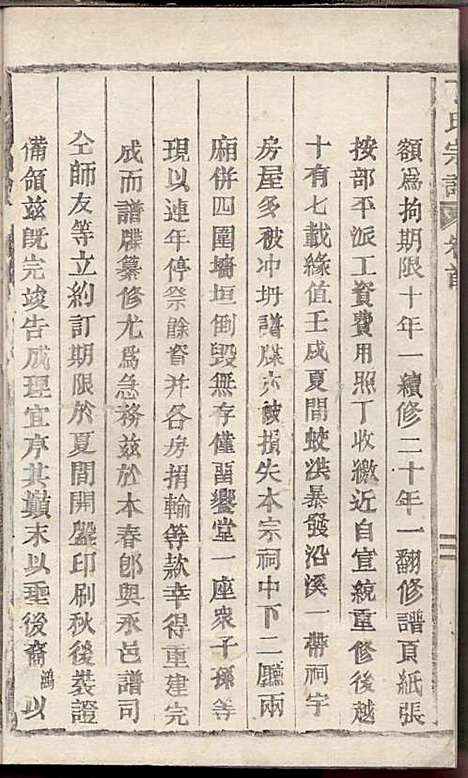 丁氏宗譜 卷首
額爲拘期限十年一續修二十年一翻修譜頁紙張
按部平派工資費用照丁收繳近自宣統重修後越
十有七載緣值壬戌夏間蛟洪暴發沿溪一帶祠宇
房屋多被冲坍譜牒亦被損失本宗祠中下二廳兩
廂併四圍墻垣倒毁無存僅畱饗堂一座衆子孫等
現以連年停祭餘眘并各房捐輸等款幸得重建完
成而譜牒纂修尤爲急務兹於本春郎與永邑譜司
仝師友等立約訂期限於夏間開盤印刷秋後裝證
備領兹既完竣告成理宜序其巔末以埀後裔鴻以